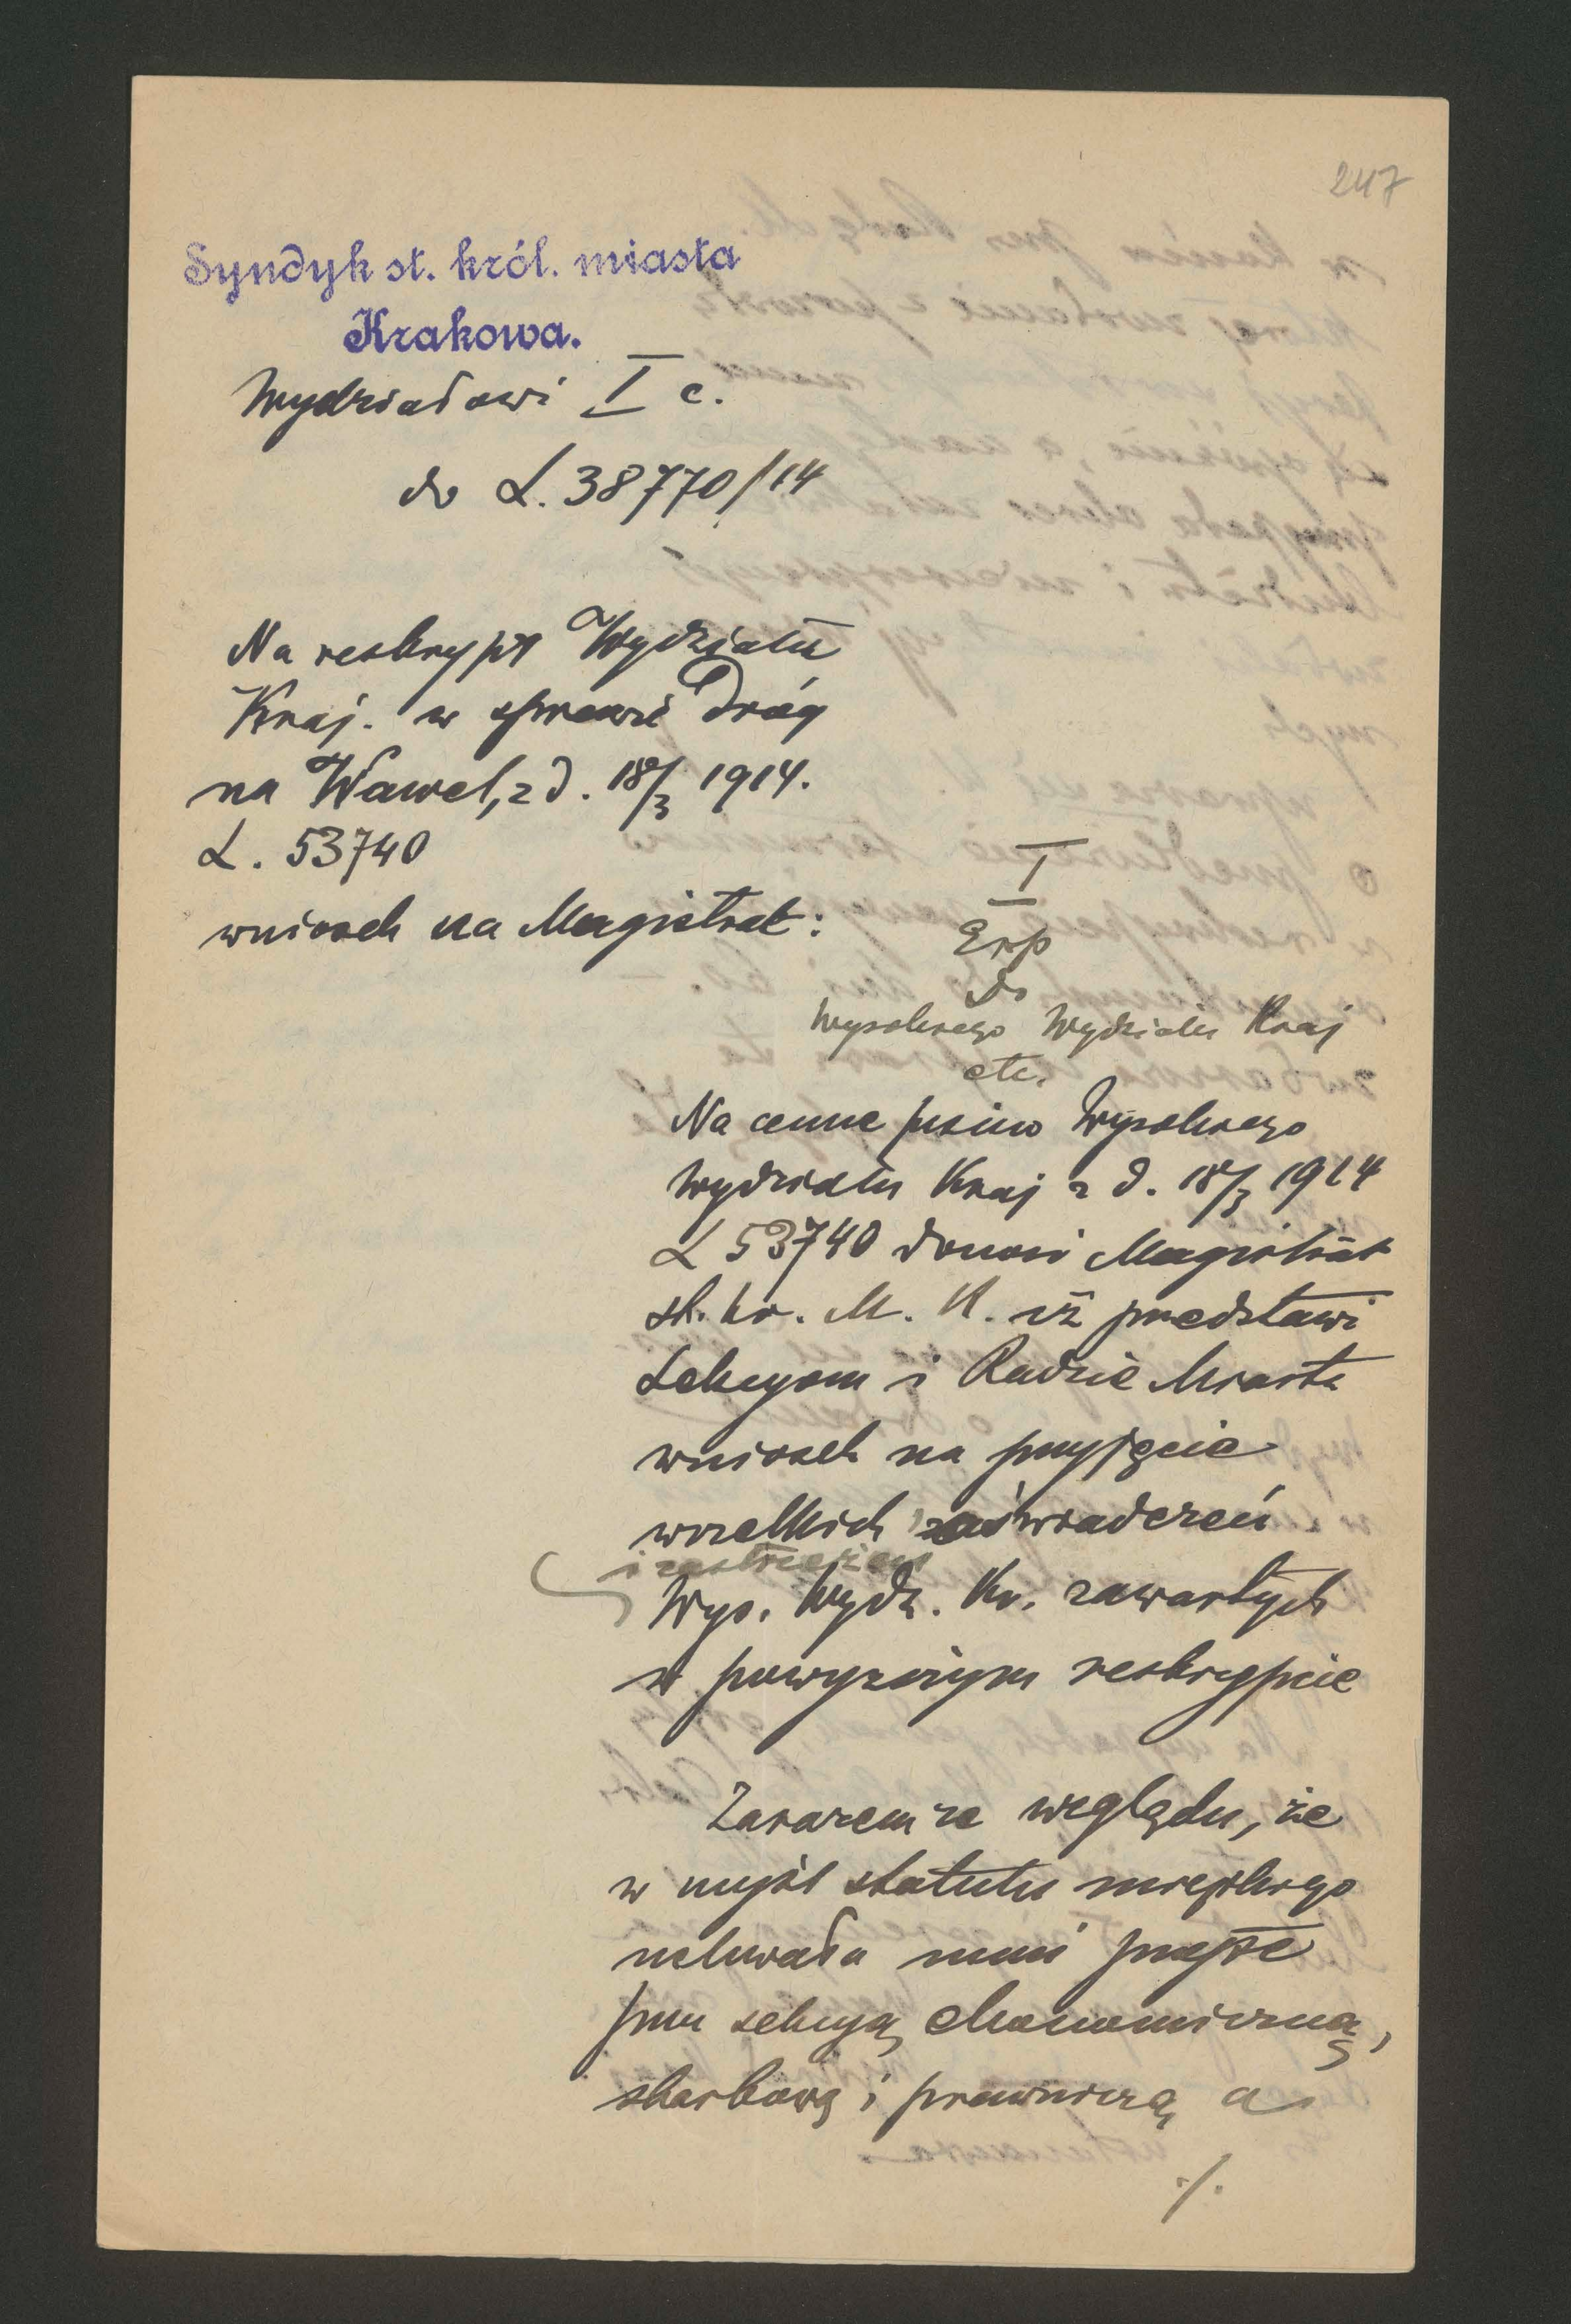 247
Syndyk st. król. miasta
Krakowa.
Wydziałowi I c.
do L. 38770/14
Na reskrypt Wydziału
Kraj. w sprawie dróg
na Wawel, z d. 18/3 1914.
L. 53740
wniosek na Magistrat:
I
Exp
do
Wysokiego Wydziału Kraj
etc.
Na cenne pismo Wysokiego
Wydziału Kraj z d. 18/3 1914
L 53740 donosi Magistrat
st. kr. M. K. iż przedstawi
Sekcyom i Radzie Miasta
wniosek na przyjęcie
wszelkich zaświadczeń
i zastrzeżeń
Wys. Wydz. Kr. zawartych
w powyższym reskrypcie
Zarazem ze względu, że
w myśl statutu miejskiego
uchwała musi przejść
przez sekcyą ekonomiczną,
skarbową i prawniczą a
./.